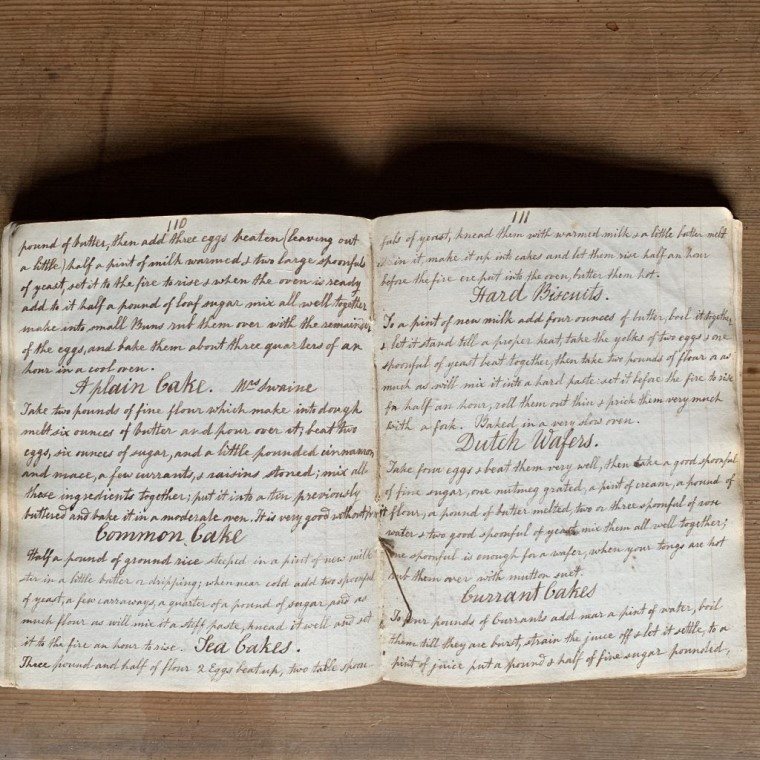 110
pound of butter, then add three eggs beaten (leaving out
a little) half a pint of milk warmed & two large spoonfuls
of yeast, set it to the fire to rise & when the oven is ready
add to it half a pound of loaf sugar mix all well together
make into small Buns rub them over with the remainder
of the eggs, and bake them about three quarters of an
hour in a cool oven.
A plain Cake. Mrs Swaine
Take two pounds of fine flour which make into dough
melt six ounces of butter and pour over it; beat two
eggs, six ounces of sugar, and a little pounded cinnamon
and mace, a few currants, & raisins stoned; mix all
these ingredients together; put it into a tin previously
buttered and bake it in a moderate oven. It is very good without fruit
Common Cake
Half a pound of ground rice steeped in a pint of new milk
stir in a little butter or dripping; when near cold add two spoonful
of yeast, a few carraways, a quarter of a pound of sugar, and as
much flour as will mix it a stiff paste, knead it well and set
it to the fire an hour to rise. Tea Cakes.
Three pound and half of flour 2 Eggs beat up, two table spoon-
111
fuls of yeast, knead them with warmed milk & a little butter melt
in it make it up into cakes and let them rise half an hour
before the fire ere put into the oven, butter them hot.
Hard Biscuits.
To a pint of new milk add four ounces of butter, boil it together,
& let it stand till a proper heat, take the yolks of two eggs & one
spoonful of yeast beat together, then take two pounds of flour or as
much as will mix it into a hard paste: set it before the fire to rise
half an hour, roll them out thin & prick them very much
with a fork. Baked in a very slow oven.
Dutch Wafers.
Take four eggs & beat them very well, then take a good spoonful
of fine sugar, one nutmeg grated, a pint of cream, a pound of
flour, a pound of butter melted, two or three spoonful of rose
water & two good spoonful of yeast mix them all well together;
one spoonful is enough for a wafer, when your tongs are hot
rub them over with mutton suet.
Currant Cakes
To four pounds of Currants add near a pint of water, boil
them till they are burst, strain the juice off & let it settle, to a
pint of juice put a pound & half of fine sugar pounded,